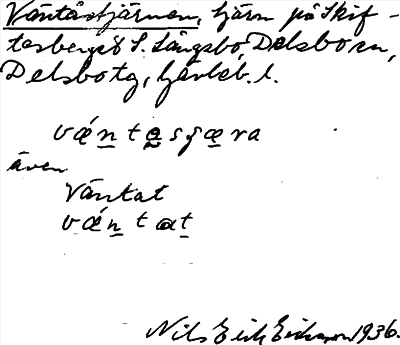 Väntåstjärnen, tjärn på Skif-
tesberget S. Långsbo, Delsbo sn,
Delsbo tg, Gävleb. l.
vǽn̲te̲sʃæ̲ra
även
Väntat
vǽn̲tat̲
Nils Erik Eriksson 1936.